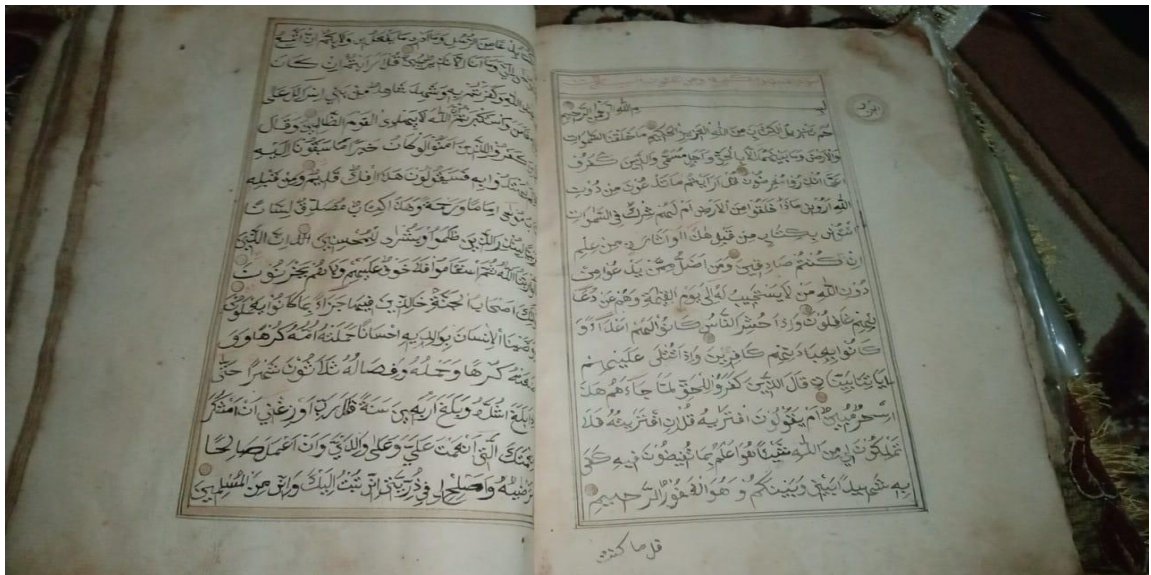 جزء
بسم الله الرحمن الرحيم
حم تنزيل الكتاب من الله العزيز الحكيم ما خلقنا السموات
والارض وما بينهما الا بالحق واجل مسمى والذين كفروا
عما انذروا معرضون قل ارايتم ما تدعون من دون
الله اروني ماذا خلقوا من الارض ام لهم شرك في السموات
ائتوني بكتاب من قبل هذا او اثارة من علم
ان كنتم صادقين ومن اضل ممن يدعوا من
دون الله من لا يستجيب له الى يوم القيمة وهم عن دعا
ئهم غافلون واذا حشر الناس كانوا لهم اعداء و
كانوا بعبادتهم كافرين واذا تتلى عليهم
اياتنا بينات قال الذين كفروا للحق لما جاءهم هذ
ا سحر مبين ام يقولون افتريه قل ان افتريته فلا
تملكون لي من الله شيئا هو اعلم بما تفيضون فيه كفى
به شهيدا بيني وبينكم وهو الغفور الرحيم
قل ما كنت
من الرسل وما ادري ما يفعل بي ولا بكم ان اتبع
الي وما انا الا نذير مبين قل ارايتم ان كان
الله وكفرتم به وشهد شاهد من بني اسرائل على
فامن واستكبرتم ان الله لا يهدي القوم الظالمين وقال
كفروا للذين امنوا لو كان خيرا ما سبقونا اليه
يهتدوا به فسيقولون هذا افك قديم ومن قبله
موسى اماما ورحمة وهذا كتاب مصدق لسانا
لينذر الذين ظلموا وبشرى للمحسنين ان الذين
الله ثم استقاموا فلا خوف عليهم ولا هم يحزنون
اصحاب الجنة خالدين فيها جزاء بما كانوا يعملون
ووصينا الانسان بوالديه احسانا حملته امه كرها وو
ضعته كرها وحمله وفصاله ثلاثون شهرا حتى
بلغ اشده وبلغ اربعين سنة قال رب اوزعني ان اشكر
نعمتك التي انعمت علي وعلى والدي وان اعمل صالحا
ترضيه واصلح لي في ذريتي اني تبت اليك واني من المسلمين